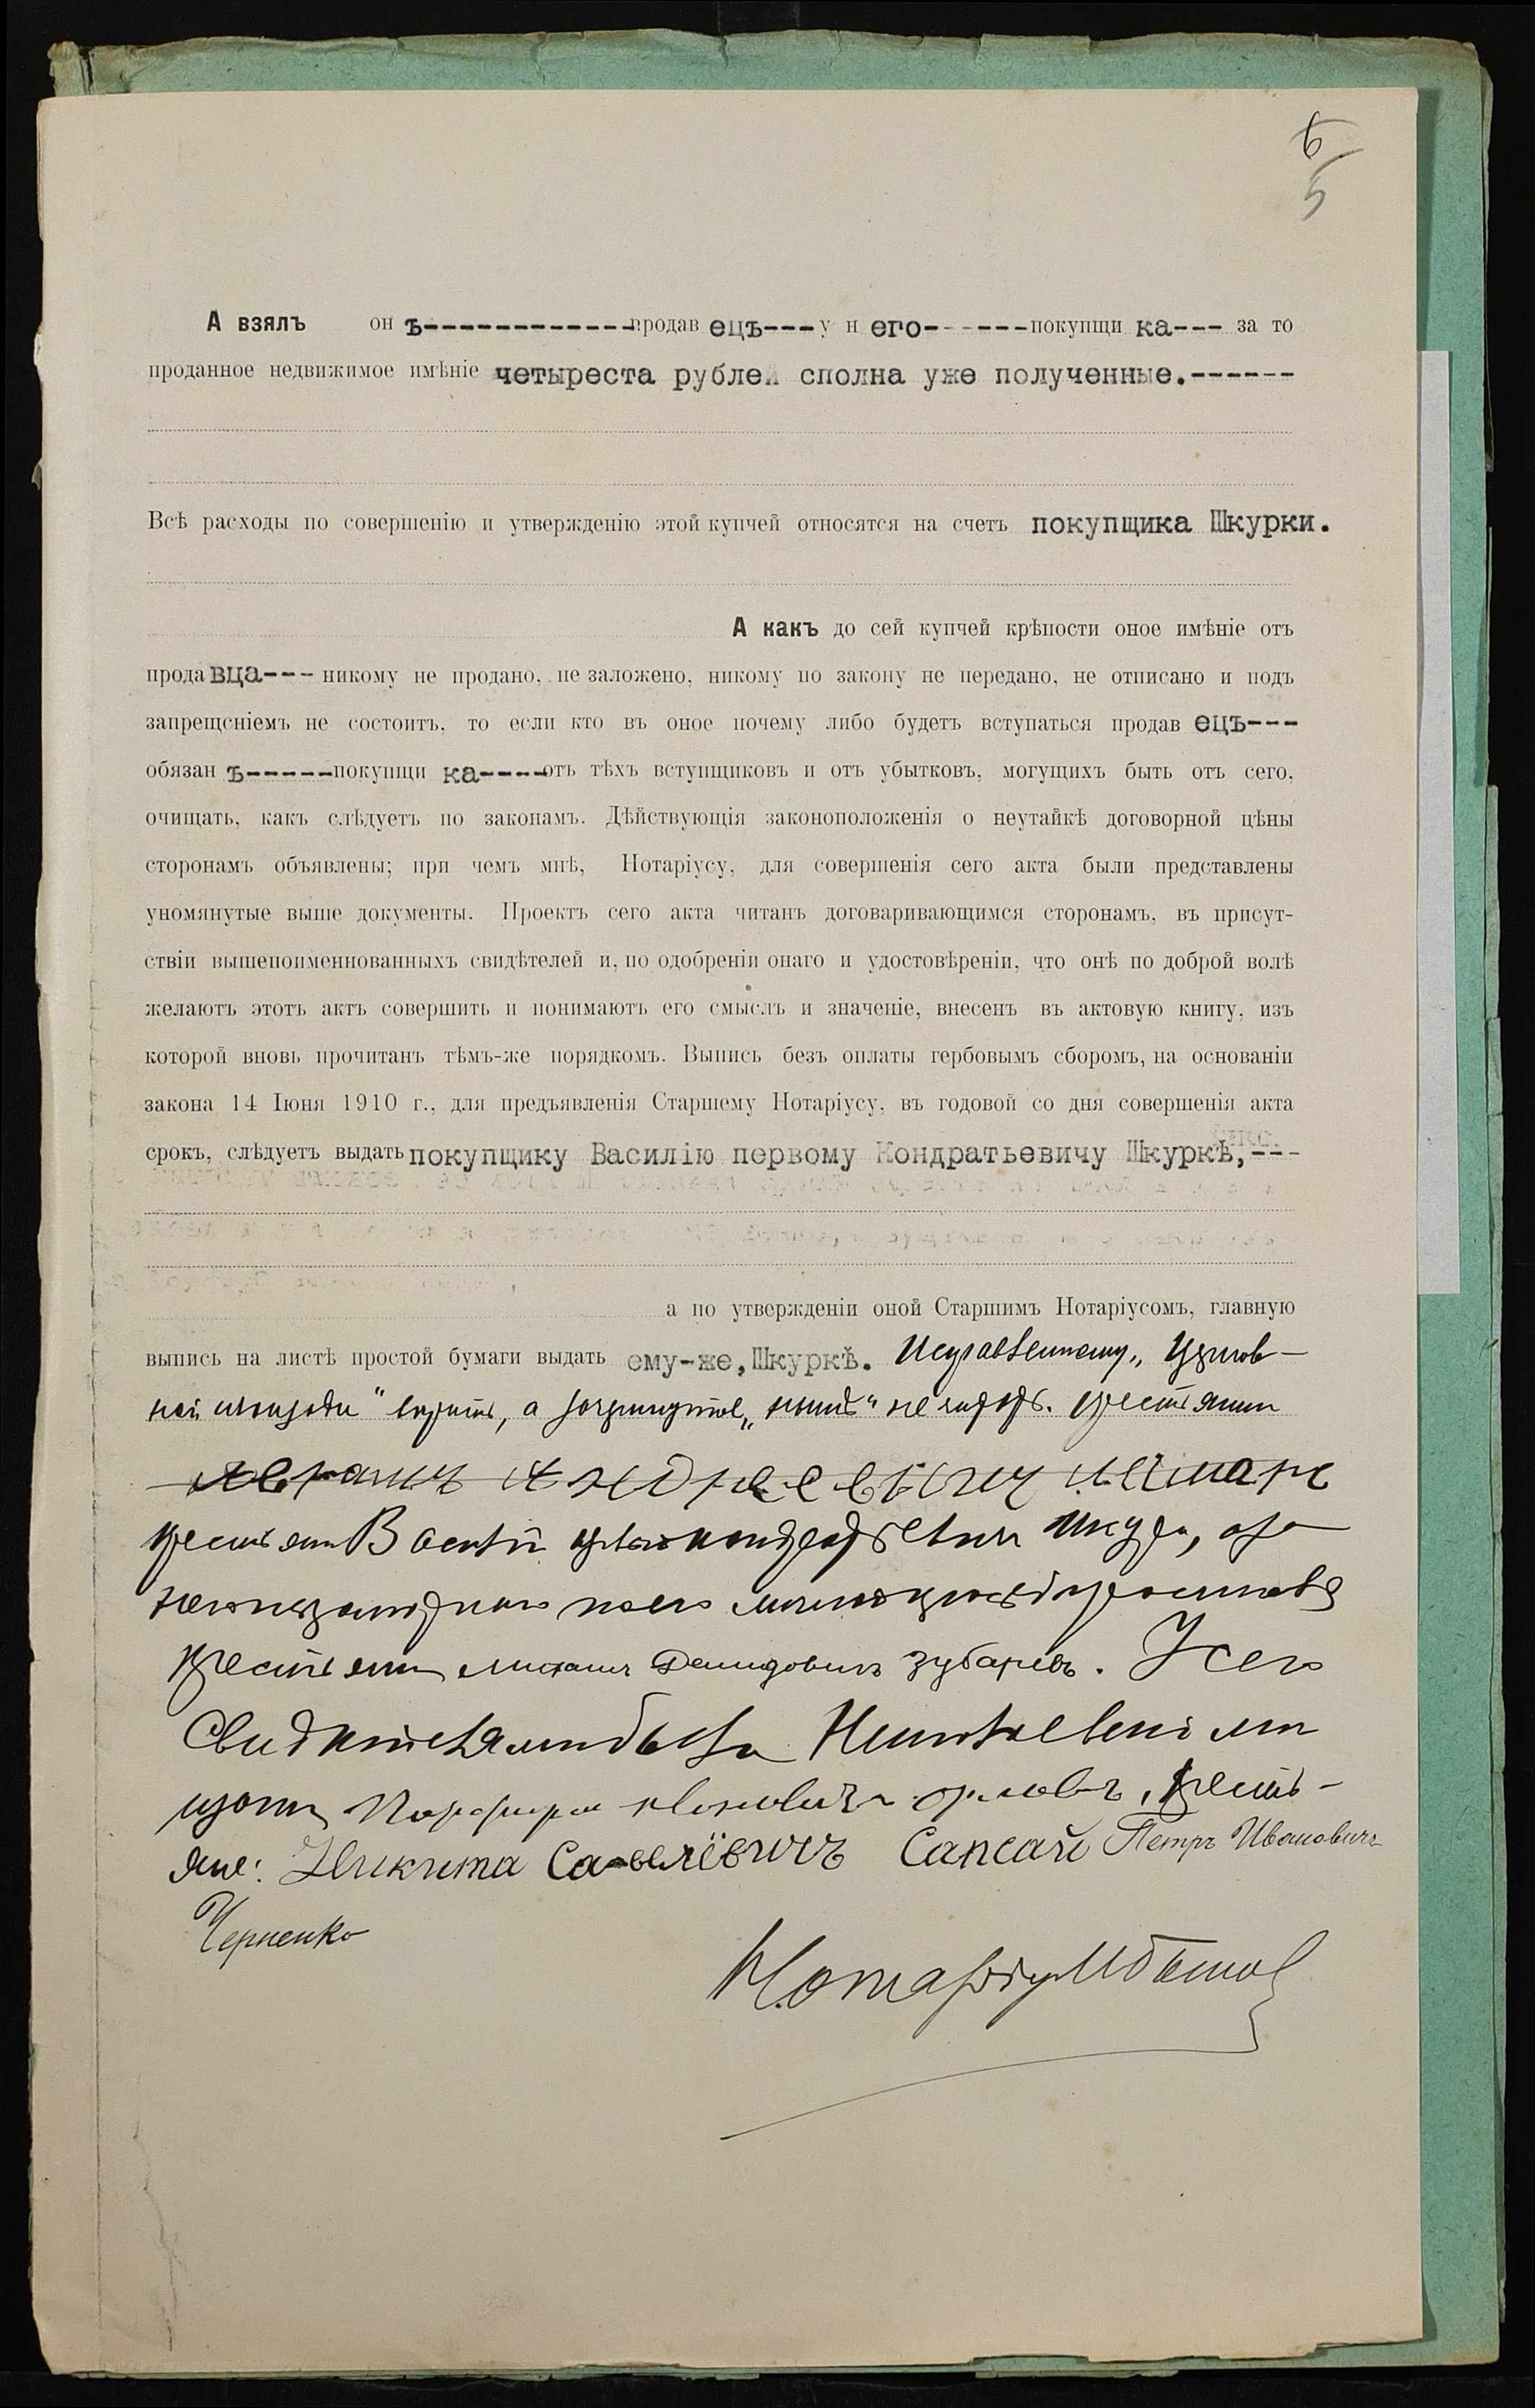 6
5
А взялъ онъ-------------продавецъ----у него-------покупщика---- за то
проданное недвижимое имѣніе четыреста рублей сполна уже полученные.------
Всѣ расходы по совершенію и утвержденію этой купчей относятся на счетъ покупщика Шкурки.
А какъ до сей купчей крѣпости оное имѣніе отъ
продавца---- никому не продано, не заложено, никому по закону не передано, не отписано и подъ
запрещеніемъ не состоитъ, то если кто въ оное почему либо будетъ вступаться продавецъ---
обязанъ------покупщика----отъ тѣхъ вступщиковъ и отъ убытковъ, могущихъ быть отъ сего,
очищать, какъ слѣдуетъ по законамъ. Дѣйствующія законоположенія о неутайкѣ договорной цѣны
сторонамъ объявлены; при чемъ мнѣ, Нотаріусу, для совершенія сего акта были представлены
упомянутые выше документы. Проектъ сего акта читанъ договаривающимся сторонамъ, въ присут-
ствіи вышепоименнованныхъ свидѣтелей и, по одобреніи онаго и удостовѣреніи, что онѣ по доброй волѣ
желаютъ этотъ актъ совершить и понимаютъ его смыслъ и значеніе, внесенъ въ актовую книгу, изъ
которой вновь прочитанъ тѣмъ-же порядкомъ. Выпись безъ оплаты гербовымъ сборомъ, на основаніи
закона 14 Іюня 1910 г., для предъявленія Старшему Нотаріусу, въ годовой со дня совершенія акта
срокъ, слѣдуетъ выдать покупщику Василію первому Кондратьевичу Шкуркѣ,---
а по утвержденіи оной Старшимъ Нотаріусомъ, главную
выпись на листѣ простой бумаги выдать ему-же, Шкуркѣ. Исправленному
площади" вѣрить, а зачеркнутое не читать. Крестьянинъ
Андреевичъ
крестьян Василій Кондратьевичъ Шкурка, а за
неграмотнаго
крестьянин Михаилъ Демидовичъ Зубаревъ. У сего
свидѣтелями были
Порфирій Орловъ, кресть-
яне: Никита Савелёвичъ Сапсай Петръ Ивановичъ
Черненко
Нотаріусъ